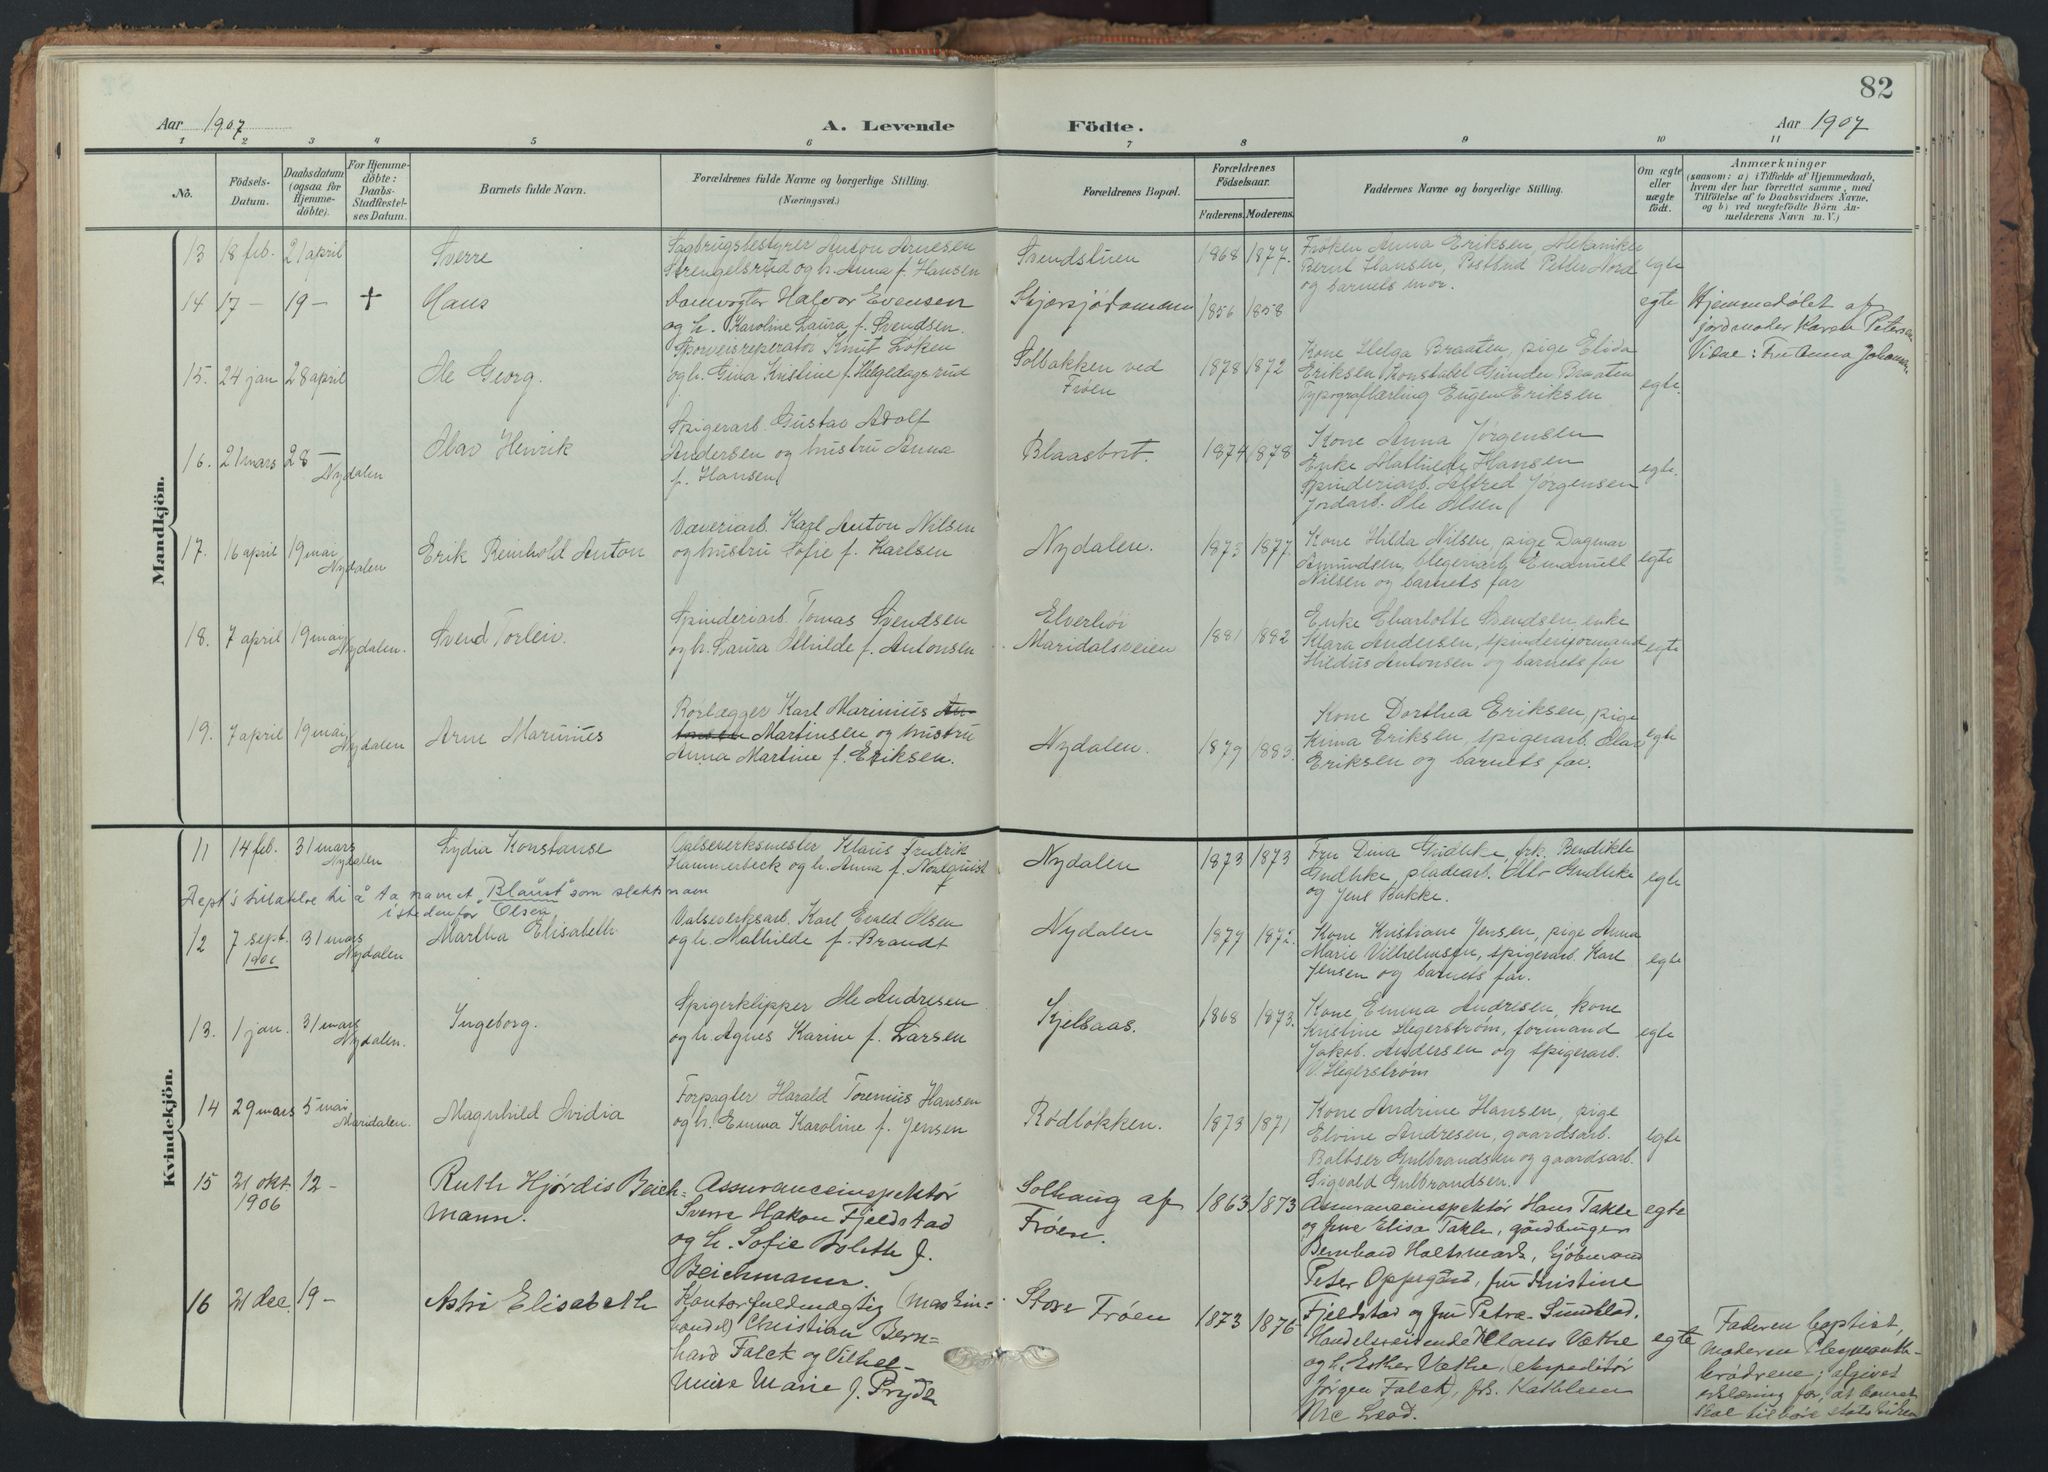 82
Aar 1907
A. Levende Födte.
Aar 1907
1 2 3 4 5 6 7 8 9 10 11
No.
Födsels-Datum.
Daabsdatum (ogsaa for Hjemmedöbte).
For Hjemmedöbte: Daabs-Stadfæstelses Datum.
Barnets fulde Navn.
Forældrenes fulde Navne og borgerlige Stilling. (Næringsvei.)
Forældrenes Bopæl.
Forældrenes Födselsaar.
Faderens. Moderens.
Faddernes Navne og borgerlige Stilling.
Om ægte eller uægte födt.
Anmærkninger
(saasom: a) i Tilfælde af Hjemmedaab, hvem der har forrettet samme, med Tilföielse af to Daabsvidners Navne, og b) ved uægtefödte Börn Anmelderens Navn m. V.)
Mandkjön.
13 18 feb. 21 april
Sverre
Sagbrugsbestyrer Anton Arnesen
Strengelsrud og h. Anna f. Hansen
Svendstuen
1868 1877.
Frøken Anna Eriksen, Mekaniker
Bernt Hansen, Postbud Petter Nord
og barnets mor.
egte
14 17 — 19 — +
Hans
Damvogter Halvor Evensen
og h. Karoline Laura f. Svendsen.
Skjærsjödammen
1856 1858
egte
Hjemmedøbt af
jordmoder Karen Petersen
Vidne: Fru Anna
15. 24 jan 28 april
Ole Georg.
Sporveisreperatør Knut Løken
og h. Gina Kristine f. Helgedagsrud
Solbakken ved
Frøen
1878 1872
Kone Helga Braaten, pige Elida
Eriksen, Konstabel Gunder Braaten
Typograflærling Eugen Eriksen
egte.
16. 21 mars 28 —
Nydalen
Olav Henrik
Spigerarb. Gustav Adolf
Andersen og hustru Anna
f. Hansen
Blaasbort.
1874 1878
Kone Anna Jørgensen
Enke Mathilde Hansen
Spinderiarb. Alfred Jørgensen
Jordarb. Ole Olsen
egte.
17. 16 april 19 mai
Nydalen
Erik Reinhold Anton
Væveriarb. Karl Anton Nilsen
og hustru Sofie f. Karlsen
Nydalen.
1873 1877.
Kone Hilda Nilsen, pige Dagmar
Amundsen, blegeriarb. Emanuell
Nilsen og barnets far
egte
18. 7 april 19 mai
Nydalen.
Svend Torlein.
Spinderiarb. Tomas Svendsen
og h. Laura Athilde f. Antonsen
Elverhöi
Maridalsveien
1881 1882
Enke Charlotte Svendsen, enke
Klara Andersen, spinderiformand
Hildus Antonsen og barnets far
egte
19. 7 april 19 mai
Nydalen
Arne Marinius
Rörlægger Karl Marinius An-
tonsen Martinsen og hustru
Anna Martine f. Eriksen.
Nydalen.
1879 1883.
Kone Dorthea Eriksen, pige
Kima Eriksen, spigerarb. Olav
Eriksen og barnets far.
egte
Kvindekjön.
11 14 feb. 31 mars
Nydalen
Lydia Konstanse
Valseverksmester Klaus Fredrik
Hammerbeck og h. Anna f. Nordquist
Nydalen
1873 1873
Fru Dina Gudlike, frk. Bendikte
Gudlike, pladearb. Otto Gudlike
og Jens Bakke.
egte
Dept's tillatelse til å ta navnet "Blaust" som slektsnavn
istedenfor Olsen
12 7 sept. 31 mars
1906 Nydalen
Martha Elisabeth.
Valseverksarb. Karl Evald Olsen
og h. Mathilde f. Brandt
Nydalen
1877 1872.
Kone Kristiane Jensen, pige Anna
Marie Vilhelmsen, spigerarb. Karl
Jensen og barnets far.
egte
13. 1 jan. 31 mars
Nydalen.
Ingeborg.
Spigerklipper Ole Andresen
og h. Agnes Karine f. Larsen
Kjelsaas.
1868 1873.
Kone Emma Andresen, kone
Kristine Hegerstrøm, formand
Jakob. Andersen og spigerarb.
V. Hegerstrøm
egte
14 29 mars 5 mai
Maridalen.
Magnhild Ovidia
Forpagter Harald Torenius Hansen
og h. Emma Karoline f. Jensen
Rødløkken.
1873 1871
Kone Andrine Hansen, pige
Elvine Andresen, gaardsarb.
Baltser Gulbrandsen og gaardsarb.
Sigvald Gulbrandsen.
egte
15 21 okt. 12 —
1906
Ruth Hjørdis Beich-
mann.
Assuranceinspektör
Sverre Hakon Fjeldstad
og h. Sofie Bolette f.
Beichmann.
Solhaug af
Frøen.
1863 1873
Assuranceinspektör Hans Takle
og frue Elisa Takle, gårdbruger
Bernhard Holtsmark, kjöbmand
Peter Oppegård, fru Kristine
Fjeldstad og fru Petra Sundblad.
egte
16 21 dec. 19 —
Astri Elisabeth
Kontorfuldmægtig (maskin-
handel) Christian Bern-
hard Falck og Vilhel-
mine Marie f. Prydz
Store Frøen
1873 1876
Handelsreisende Claus Væthe
og h. Esther Væthe, expeditör
Jörgen Falck, frk. Kathleen
Mc Leod.
egte
Faderen baptist,
moderen Plymouth-
brødrene; afgivet
erklæring for, at barnet
skal tilhöre statskirken